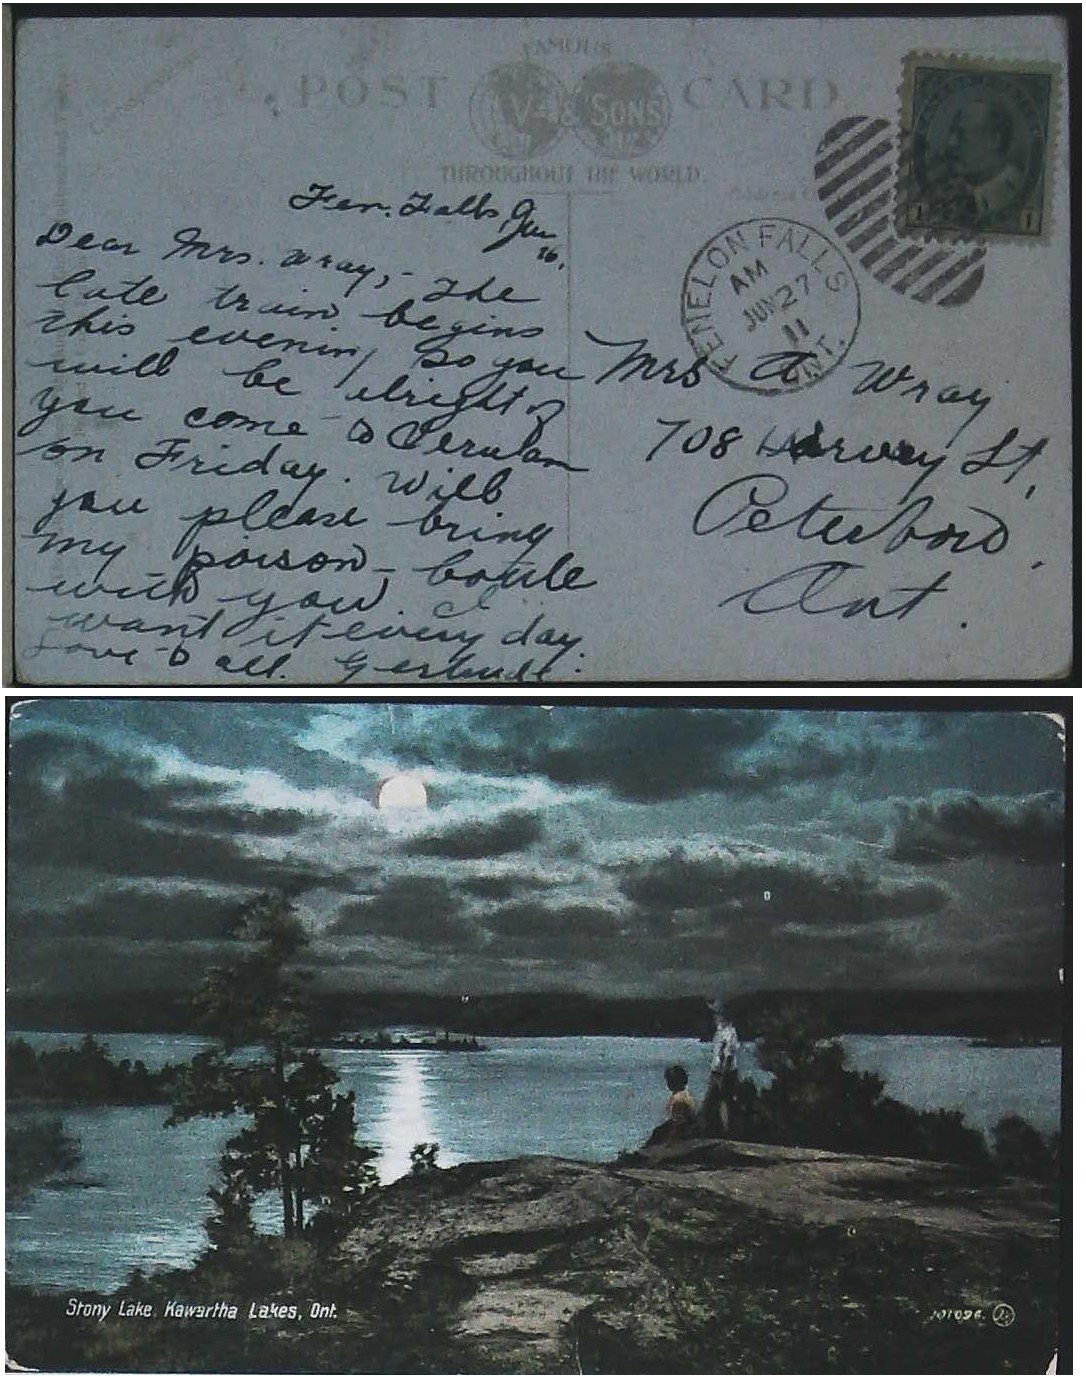 FAMOUS
POST CARD
V & SONS
THROUGHOUT THE WORLD.
Fen. Falls, Jun
26.
Dear Mrs. Wray, - The
late train begins
this evening so you
will be alright if
you come to Verulam
on Friday. Will
you please bring
my poison-bottle
with you. I
want it every day.
Love to all. Gertrude.
FENELON FALLS
AM
JUN 27
11
ONT.
1 1
Mrs A Wray
708 Harvey St,
Peterboro.
Ont.
Stony Lake, Kawartha Lakes, Ont.
101096. JV